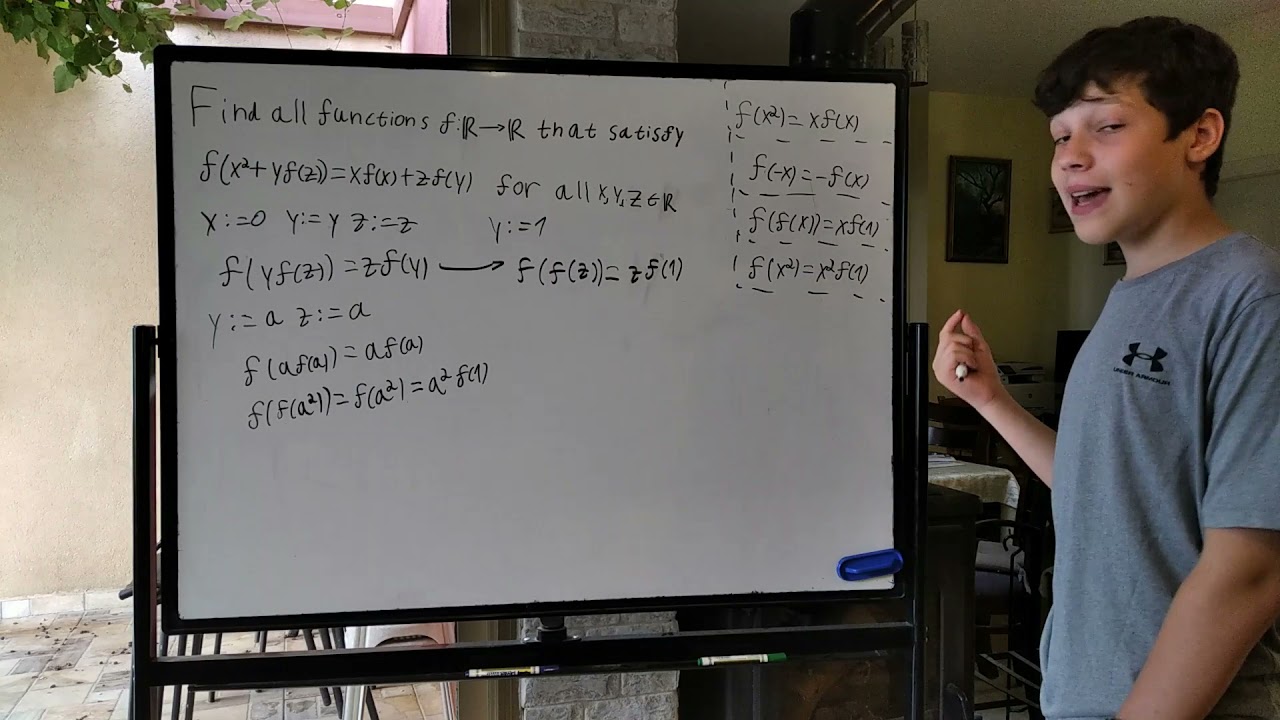 Find all functions f:ℝ→ℝ that satisfy
f(x²+yf(z))=xf(x)+zf(y) for all x,y,z∈ℝ
x:=0 y:=y z:=z y:=1
f(yf(z))=zf(y) → f(f(z))=zf(1)
y:=a z:=a
f(af(a))=af(a)
f(f(a²))=f(a²)=a²f(1)
f(x²)=xf(x)
f(-x)=-f(x)
f(f(x))=xf(1)
f(x²)=x²f(1)
UNDER ARMOUR